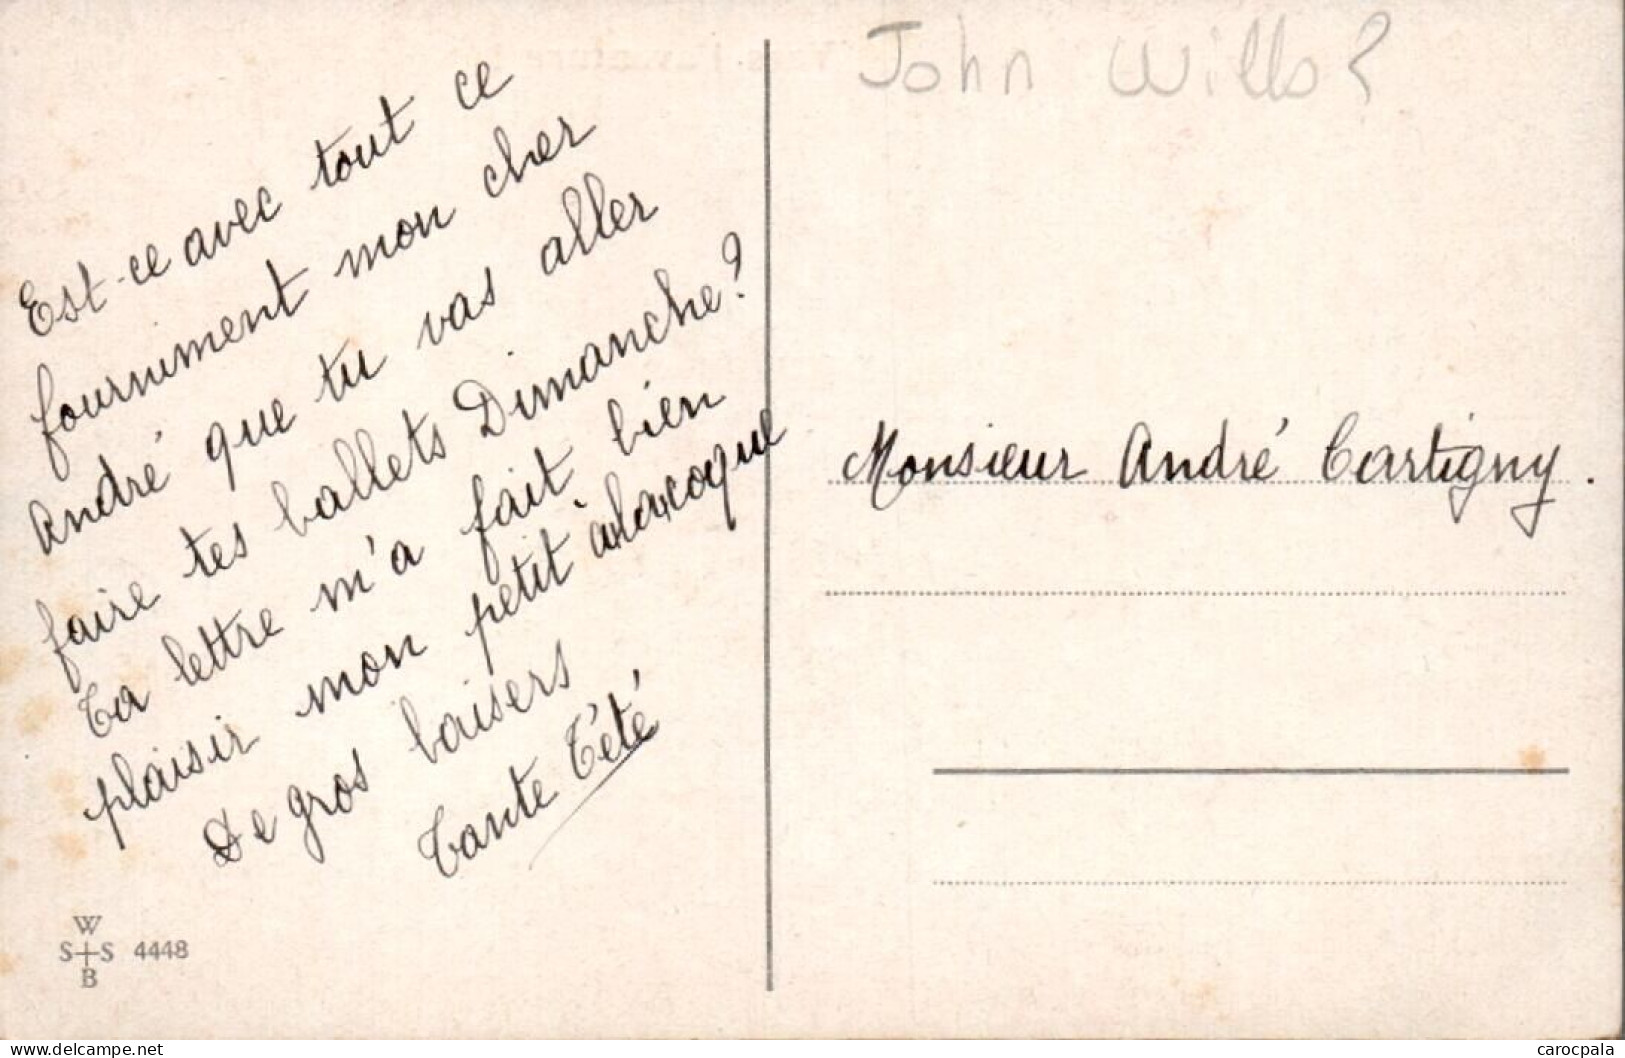 Est-ce avec tout ce
fourniment mon cher
André que tu vas aller
faire tes ballets Dimanche?
Ta lettre m'a fait bien
plaisir mon petit à la coque
De gros baisers
Tante Tété
W
S+S 4448
B
John Wills?
Monsieur André Cartigny.
carocpala